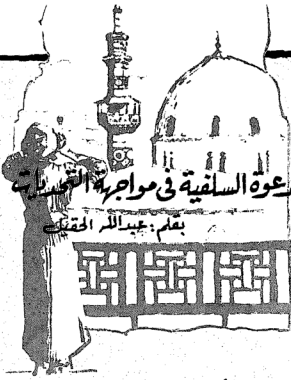 دعوة السلفية فى مواجهة التحديات
بقلم: عبدالله الحقيل